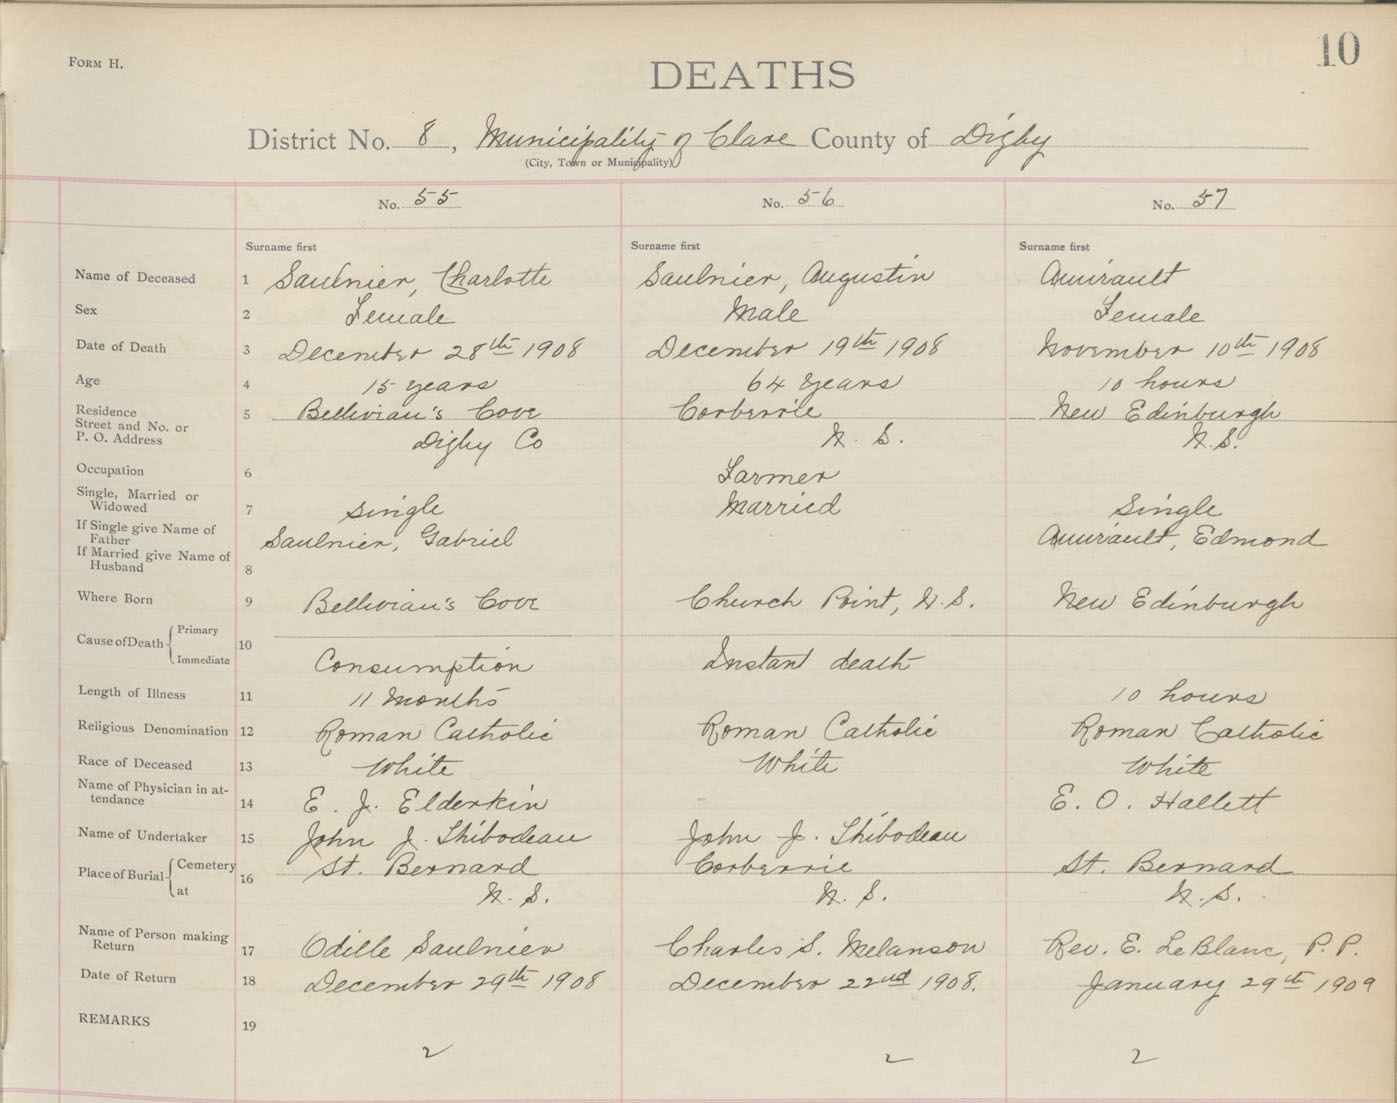 10
FORM H.
DEATHS
District No. 8, Municipality of Clare County of Digby
(City, Town or Municipality)
No. 55 No. 56 No. 57
Surname first Surname first Surname first
Name of Deceased 1 Saulnier, Charlotte Saulnier, Augustin Amirault
Sex 2 Female Male Female
Date of Death 3 December 28th 1908 December 19th 1908 November 10th 1908
Age 4 15 years 64 years 10 hours
Residence 5 Bellivian's Cove Corberrie New Edinburgh
Street and No. or
P. O. Address Digby Co N. S. N.S.
Occupation 6 Farmer
Single, Married or
Widowed 7 single Married Single
If Single give Name of
Father Saulnier, Gabriel Amirault, Edmond
If Married give Name of
Husband 8
Where Born 9 Bellivian's Cove Church Point, N.S. New Edinburgh
Cause of Death Primary 10
Immediate Consumption Instant death
Length of Illness 11 11 Months 10 hours
Religious Denomination 12 Roman Catholic Roman Catholic Roman Catholic
Race of Deceased 13 White White White
Name of Physician in at-
tendance 14 E. J. Elderkin E. O. Hallett
Name of Undertaker 15 John J. Thibodeau John J. Thibodeau
Place of Burial Cemetery 16 St. Bernard Corberrie St. Bernard
at N. S. N. S. N. S.
Name of Person making
Return 17 Odille Saulnier Charles S. Melanson Rev. E. LeBlanc, P. P.
Date of Return 18 December 29th 1908 December 22nd 1908. January 29th 1909
REMARKS 19
2 2 2